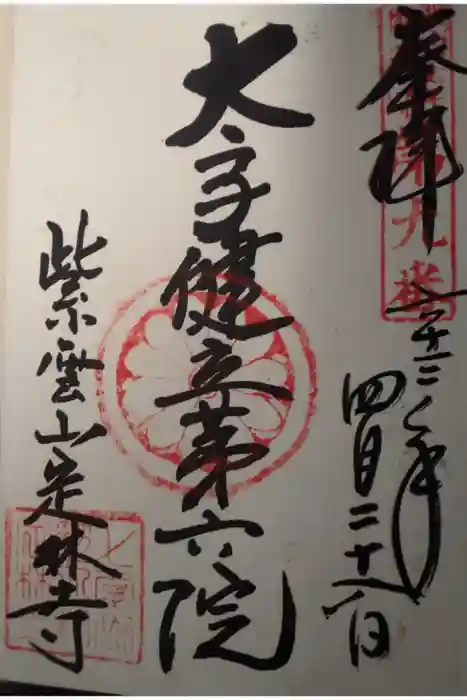 奉拝
第九番
二十三年
四月二十八日
大子健立第六院
紫雲山定林寺